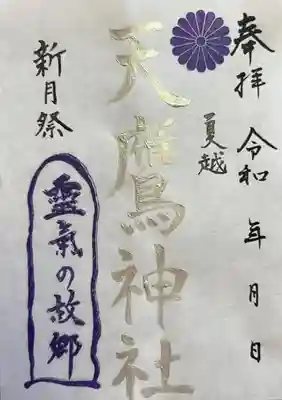 奉拝 令和 年 月 日
夏越
天鷹神社
新月祭
靈氣の故郷